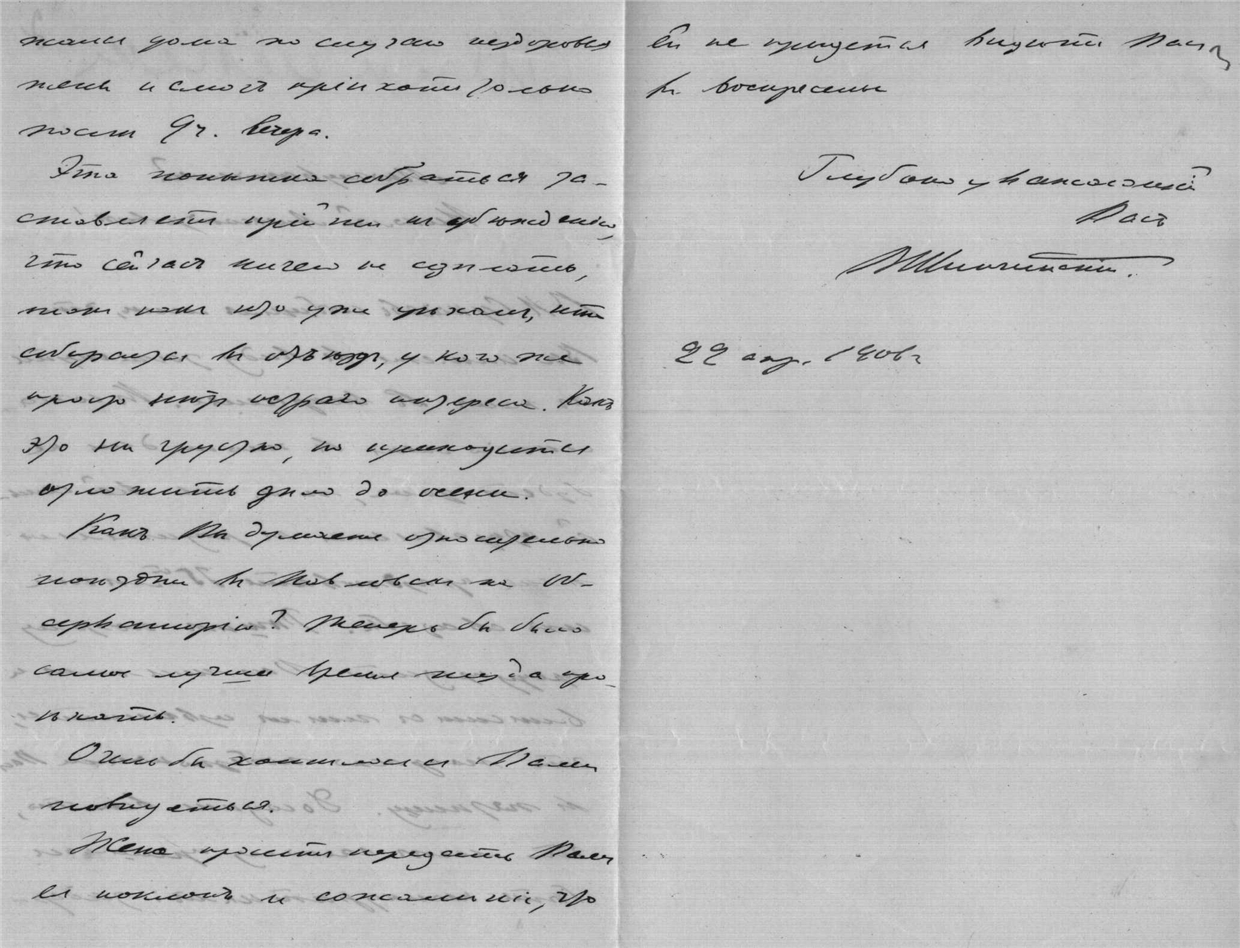 жался дома по случаю нездоровья
жены и смогъ пріѣхать только
послѣ 9 ч. вечера.
Эта попытка собраться за-
ставляетъ прійти къ убѣжденію,
что сейчасъ ничего не сдѣлать,
такъ какъ кто уже уѣхалъ, кто
собирается къ отъѣзду, у кого же
просто нѣтъ остраго интереса. Какъ
это ни грустно, но приходится
отложить дѣло до осени.
Какъ Вы думаете относительно
поѣздки въ Павловскъ на Об-
серваторію? Теперь бы было
самое лучшее время туда про-
ѣхать.
Очень бы хотѣлось съ Вами
повидаться.
Жена проситъ передать Вамъ
ея поклонъ и сожалѣніе, что
ей не придется видѣть Васъ
въ воскресенье
Глубоко уважающій
Васъ
22 апр. 1906 г.